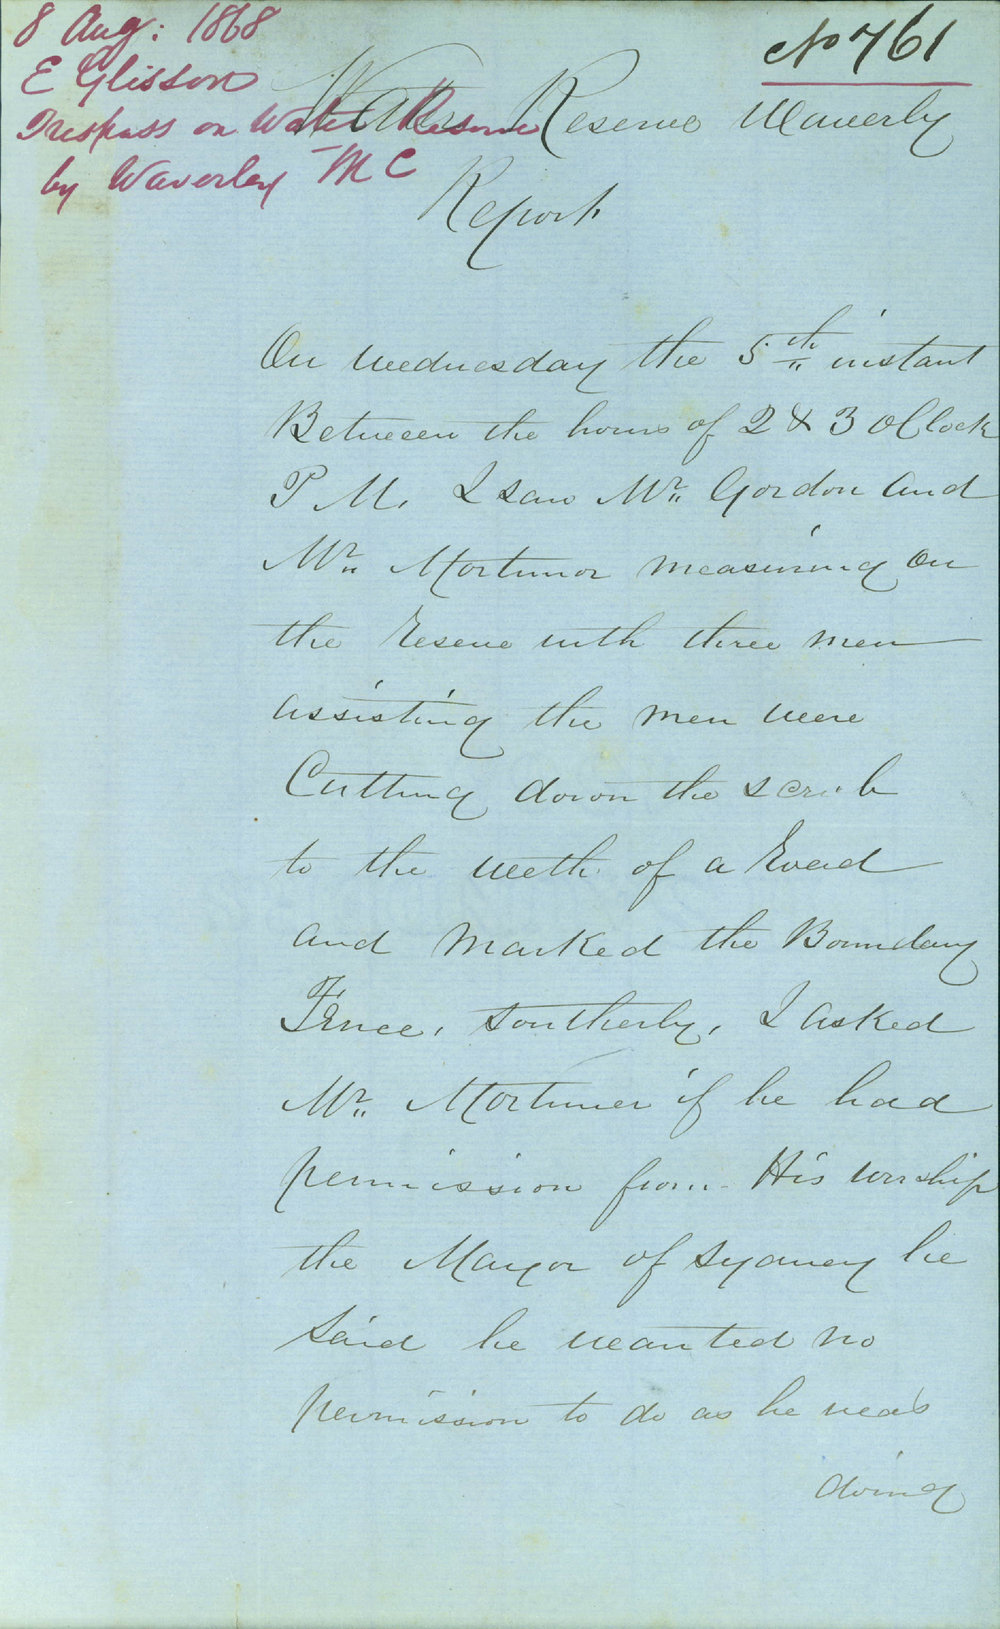 8 Aug: 1868
E Glisson
Trespass on Water Reserve
by Waverley M C
No 761
Water Reserve Waverly
Report
On Wednesday the 5th instant
Between the hours of 2 & 3 oClock
P M. I saw Mr. Gordon and
Mr. Mortimor measuring on
the reserve with three men
assisting the men were
Cutting down the scrub
to the weth of a road
and Marked the Boundary
Fence, Southerly, I asked
Mr. Mortimer if he had
permission from His worship
the Mayor of Sydney he
Said he wanted no
permission to do as he was
doing